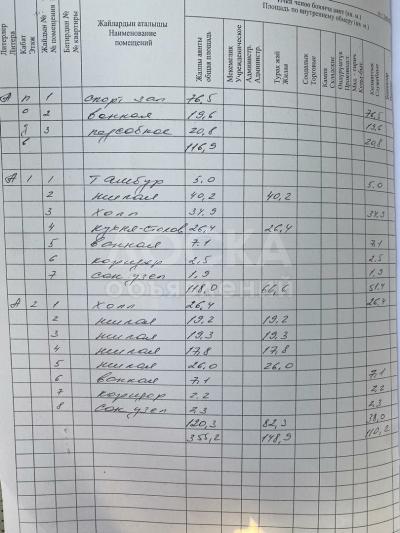 Ички ченөө боюнча аянт (кв. м.)
Площадь по внутреннему обмеру (кв. м.)
Литерлер
Литера
Кабат
Этаж
Жайдын №
№ помещения
Батирдин №
№ квартиры
Жайлардын аталышы
Наименование помещений
Жалпы аянты
общая площадь
Мекемелик
Учрежденческие
Администр.
Администр.
Турак жай
Жилая
Соодалык
Торговые
Кампа
Складские
А п 1 спорт зал 76,5 76,5
о 2 ванная 19,6 19,6
д 3 подсобное 20,8 20,8
в 116,9
А 1 1 тамбур 5.0 5.0
2 жилая 40,2 40,2
3 холл 34,9 34,9
4 кухня-столов 26,4 26,4
5 ванная 7.1 7.1
6 коридор 2.5 2.5
7 сан узел 1.9 1.9
118.0 66,6 51,4
А 2 1 холл 26,4 26,4
2 жилая 19,2 19,2
3 жилая 19,3 19,3
4 жилая 17,8 17,8
5 жилая 26,0 26,0
6 ванная 7.1 7.1
7 коридор 2.2 2.2
8 сан узел 2.3 2.3
120,3 82,3 38,0
355,2 148,9 110,2
ДОСКА
ОБЪЯВЛЕНИЙ